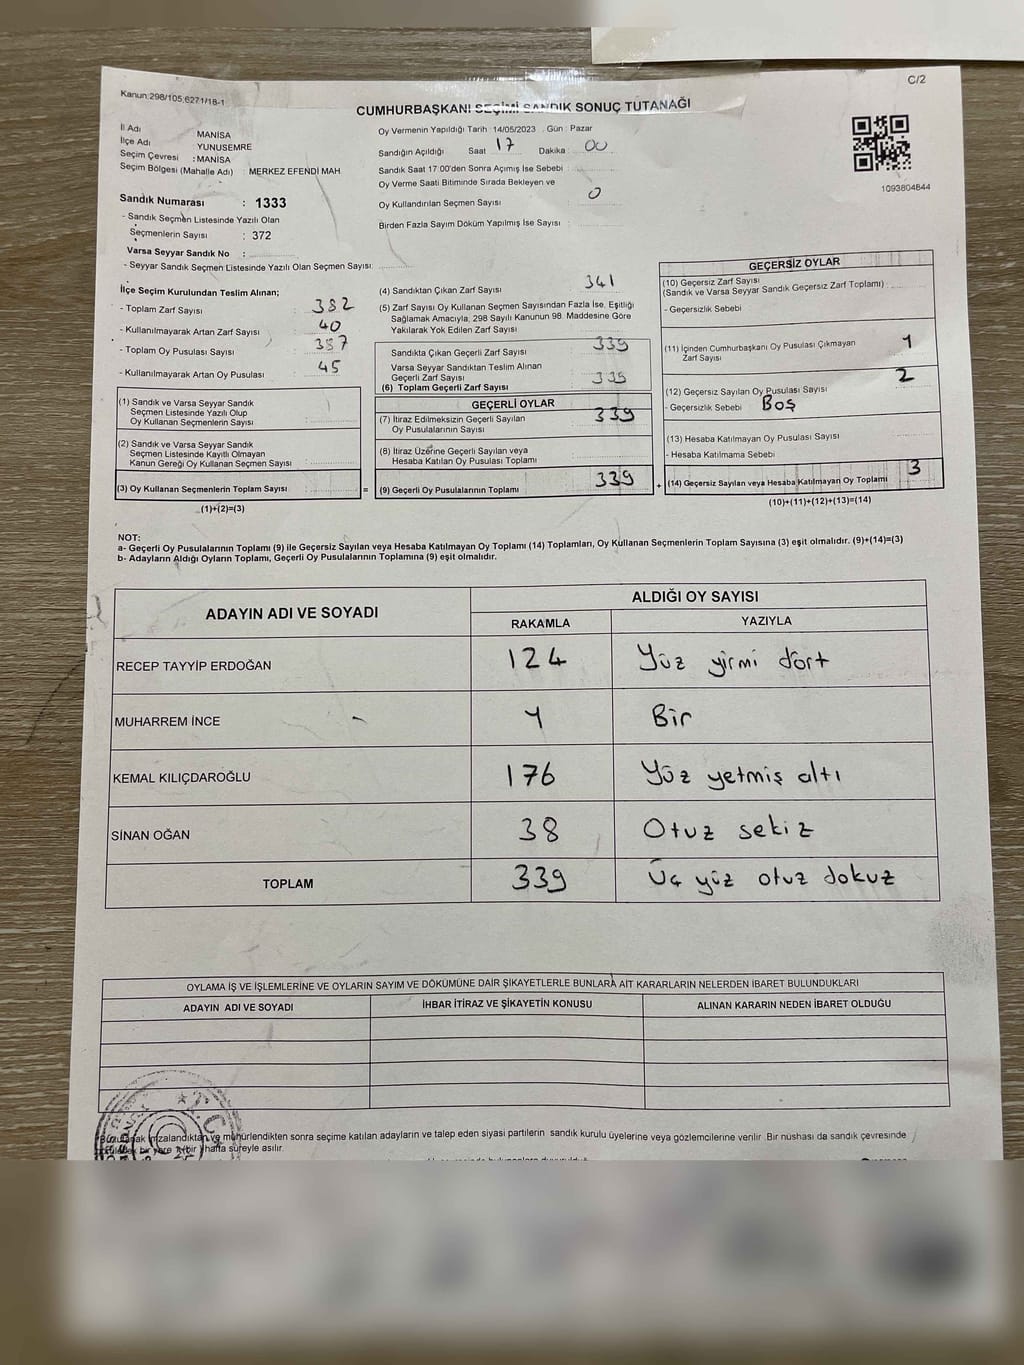 C/2
Kanun:298/105,6271/18-1
CUMHURBAŞKANI SEÇİMİ SANDIK SONUÇ TUTANAĞI
İl Adı MANİSA
İlçe Adı YUNUSEMRE
Seçim Çevresi : MANİSA
Seçim Bölgesi (Mahalle Adı) : MERKEZ EFENDİ MAH
Oy Vermenin Yapıldığı Tarih : 14/05/2023 Gün : Pazar
Sandığın Açıldığı Saat 17 Dakika : 00
Sandık Saat 17:00'den Sonra Açımış İse Sebebi :
Oy Verme Saati Bitiminde Sırada Bekleyen ve
Oy Kullandırılan Seçmen Sayısı : 0
Birden Fazla Sayım Döküm Yapılmış İse Sayısı :
1093804844
Sandık Numarası : 1333
- Sandık Seçmen Listesinde Yazılı Olan
Seçmenlerin Sayısı : 372
Varsa Seyyar Sandık No :
- Seyyar Sandık Seçmen Listesinde Yazılı Olan Seçmen Sayısı:
İlçe Seçim Kurulundan Teslim Alınan;
- Toplam Zarf Sayısı : 382
- Kullanılmayarak Artan Zarf Sayısı : 40
- Toplam Oy Pusulası Sayısı : 387
- Kullanılmayarak Artan Oy Pusulası : 45
(1) Sandık ve Varsa Seyyar Sandık
Seçmen Listesinde Yazılı Olup
Oy Kullanan Seçmenlerin Sayısı :
(2) Sandık ve Varsa Seyyar Sandık
Seçmen Listesinde Kayıtlı Olmayan
Kanun Gereği Oy Kullanan Seçmen Sayısı :
(3) Oy Kullanan Seçmenlerin Toplam Sayısı
(1)+(2)=(3)
=
(4) Sandıktan Çıkan Zarf Sayısı : 341
(5) Zarf Sayısı Oy Kullanan Seçmen Sayısından Fazla İse, Eşitliği
Sağlamak Amacıyla, 298 Sayılı Kanunun 98. Maddesine Göre
Yakılarak Yok Edilen Zarf Sayısı :
Sandıkta Çıkan Geçerli Zarf Sayısı : 339
Varsa Seyyar Sandıktan Teslim Alınan
Geçerli Zarf Sayısı :
(6) Toplam Geçerli Zarf Sayısı : 339
GEÇERLİ OYLAR
(7) İtiraz Edilmeksizin Geçerli Sayılan
Oy Pusulalarının Sayısı : 339
(8) İtiraz Üzerine Geçerli Sayılan veya
Hesaba Katılan Oy Pusulası Toplamı :
(9) Geçerli Oy Pusulalarının Toplamı 339
+
GEÇERSİZ OYLAR
(10) Geçersiz Zarf Sayısı
(Sandık ve Varsa Seyyar Sandık Geçersiz Zarf Toplamı) :
- Geçersizlik Sebebi :
(11) İçinden Cumhurbaşkanı Oy Pusulası Çıkmayan
Zarf Sayısı : 1
(12) Geçersiz Sayılan Oy Pusulası Sayısı : 2
- Geçersizlik Sebebi : Boş
(13) Hesaba Katılmayan Oy Pusulası Sayısı :
- Hesaba Katılmama Sebebi :
(14) Geçersiz Sayılan veya Hesaba Katılmayan Oy Toplamı 3
(10)+(11)+(12)+(13)=(14)
NOT:
a- Geçerli Oy Pusulalarının Toplamı (9) ile Geçersiz Sayılan veya Hesaba Katılmayan Oy Toplamı (14) Toplamları, Oy Kullanan Seçmenlerin Toplam Sayısına (3) eşit olmalıdır. (9)+(14)=(3)
b- Adayların Aldığı Oyların Toplamı, Geçerli Oy Pusulalarının Toplamına (9) eşit olmalıdır.
ADAYIN ADI VE SOYADI
ALDIĞI OY SAYISI
RAKAMLA YAZIYLA
RECEP TAYYİP ERDOĞAN 124 Yüz yirmi dört
MUHARREM İNCE 1 Bir
KEMAL KILIÇDAROĞLU 176 Yüz yetmiş altı
SİNAN OĞAN 38 Otuz sekiz
TOPLAM 339 Üç yüz otuz dokuz
OYLAMA İŞ VE İŞLEMLERİNE VE OYLARIN SAYIM VE DÖKÜMÜNE DAİR ŞİKAYETLERLE BUNLARA AİT KARARLARIN NELERDEN İBARET BULUNDUKLARI
ADAYIN ADI VE SOYADI İHBAR İTİRAZ VE ŞİKAYETİN KONUSU ALINAN KARARIN NEDEN İBARET OLDUĞU
T.C.
Bu tutanak imzalandıktan ve mühürlendikten sonra seçime katılan adayların ve talep eden siyasi partilerin sandık kurulu üyelerine veya gözlemcilerine verilir. Bir nüshası da sandık çevresinde
bir yere 1 (bir) hafta süreyle asılır.